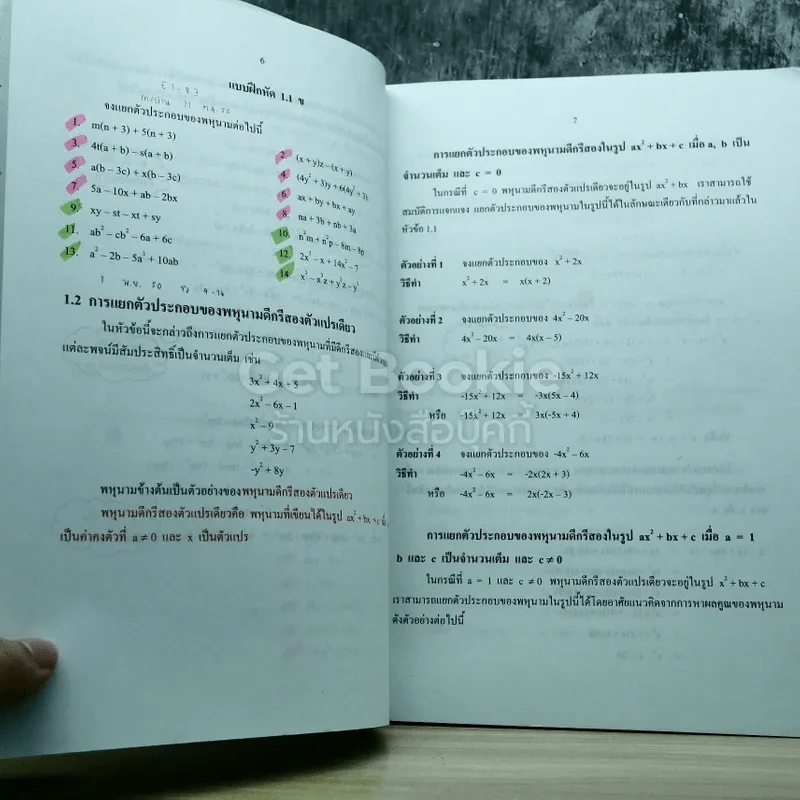 6
แบบฝึกหัด 1.1 ข
จงแยกตัวประกอบของพหุนามต่อไปนี้
1. m(n + 3) + 5(n + 3)
2. (x + y)z – (x + y)
3. 4t(a + b) – s(a + b)
4. (4y² + 3)y + 6(4y² + 3)
5. a(b – 3c) + x(b – 3c)
6. ax + by + bx + ay
7. 5a – 10x + ab – 2bx
8. na + 3b + nb + 3a
9. xy – st – xt + sy
10. n²m + n²p – 8m – 8p
11. ab² – cb² – 6a + 6c
12. 2x³ – x + 14x² – 7
13. a² – 2b – 5a³ + 10ab
14. x³ – x²z + y²z – y²
1.2 การแยกตัวประกอบของพหุนามดีกรีสองตัวแปรเดียว
ในหัวข้อนี้จะกล่าวถึงการแยกตัวประกอบของพหุนามที่มีดีกรีสอง
แต่ละพจน์มีสัมประสิทธิ์เป็นจำนวนเต็ม เช่น
3x² + 4x + 5
2x² – 6x – 1
x² – 9
y² + 3y – 7
-y² + 8y
พหุนามข้างต้นเป็นตัวอย่างของพหุนามดีกรีสองตัวแปรเดียว
พหุนามดีกรีสองตัวแปรเดียวคือ พหุนามที่เขียนได้ในรูป ax² + bx + c
เป็นค่าคงตัวที่ a ≠ 0 และ x เป็นตัวแปร
7
การแยกตัวประกอบของพหุนามดีกรีสองในรูป ax² + bx + c เมื่อ a, b เป็น
จำนวนเต็ม และ c = 0
ในกรณีที่ c = 0 พหุนามดีกรีสองตัวแปรเดียวจะอยู่ในรูป ax² + bx เราสามารถใช้
สมบัติการแจกแจง แยกตัวประกอบของพหุนามในรูปนี้ได้ในลักษณะเดียวกับที่กล่าวมาแล้วใน
หัวข้อ 1.1
ตัวอย่างที่ 1 จงแยกตัวประกอบของ x² + 2x
วิธีทำ x² + 2x = x(x + 2)
ตัวอย่างที่ 2 จงแยกตัวประกอบของ 4x² – 20x
วิธีทำ 4x² – 20x = 4x(x – 5)
ตัวอย่างที่ 3 จงแยกตัวประกอบของ -15x² + 12x
วิธีทำ -15x² + 12x = -3x(5x – 4)
หรือ -15x² + 12x = 3x(-5x + 4)
ตัวอย่างที่ 4 จงแยกตัวประกอบของ -4x² – 6x
วิธีทำ -4x² – 6x = -2x(2x + 3)
หรือ -4x² – 6x = 2x(-2x – 3)
การแยกตัวประกอบของพหุนามดีกรีสองในรูป ax² + bx + c เมื่อ a = 1
b และ c เป็นจำนวนเต็ม และ c ≠ 0
ในกรณีที่ a = 1 และ c ≠ 0 พหุนามดีกรีสองตัวแปรเดียวจะอยู่ในรูป x² + bx + c
เราสามารถแยกตัวประกอบของพหุนามในรูปนี้ได้โดยอาศัยแนวคิดจากการหาผลคูณของพหุนาม
ดังตัวอย่างต่อไปนี้
Get Bookie
ร้านหนังสือบุคกี้